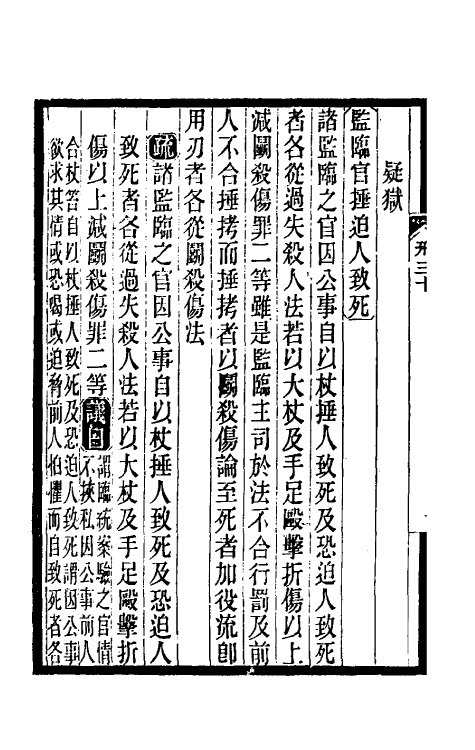 疑獄
監臨官捶迫人致死
諸監臨之官因公事自以杖捶人致死及恐迫人致死
者各從過失殺人法若以大杖及手足毆擊折傷以上
減鬭殺傷罪二等雖是監臨主司於法不合行罰及前
人不合捶拷而捶拷者以鬭殺傷論至死者加役流卽
用刃者各從鬭殺傷法
疏諸監臨之官因公事自以杖捶人致死及恐迫人
致死者各從過失殺人法若以大杖及手足毆擊折
傷以上減鬭殺傷罪二等議曰謂臨統案驗之官情
不挾私因公事前人
合杖笞自以杖捶人致死及恐迫人致死謂因公事
欲求其情或恐喝或迫脅前人怕懼而自致死者各
刑三十